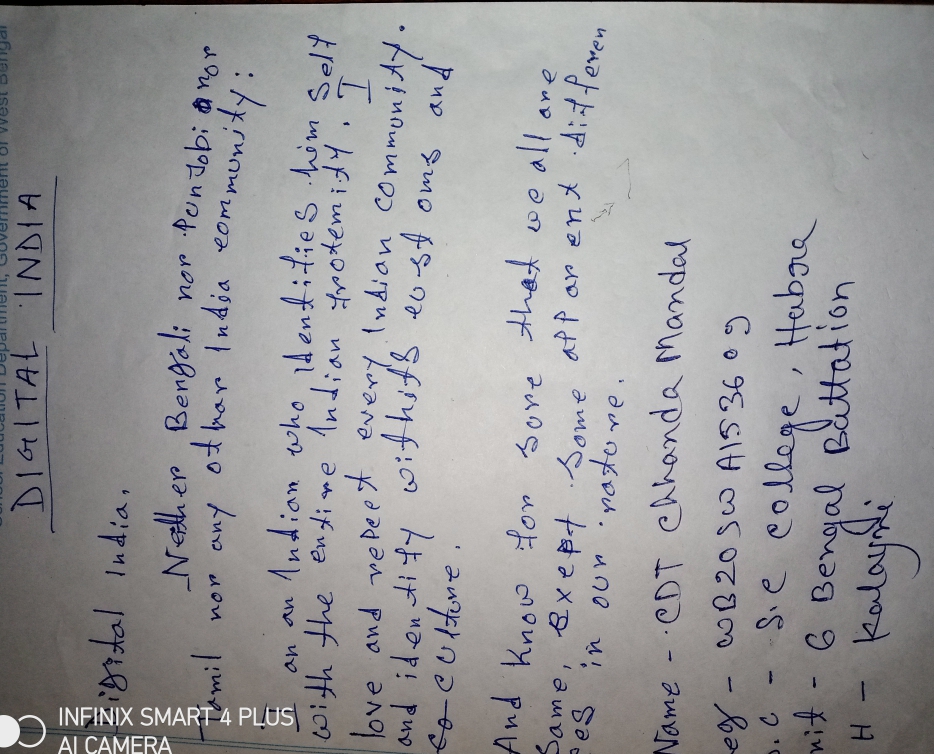 School Education Department, Government of West Bengal
DIGITAL INDIA
Digital India,
Neither Bengali nor Punjobi nor
Tamil nor any othar India community:
I an an Indian who Identifies him Self
with the entire Indian frotemity. I
love and repect every Indian community.
and identify withits eustoms and
Co culture.
And Know for sure that we all are
Same, exept some apparent differen
ces in our nature.
Name - CDT Chhanda Mandal
eg - WB20SWA153609
S.C College, Habra
nit - 6 Bengal Battation
H - Kalayni
INFINIX SMART 4 PLUS
AI CAMERA